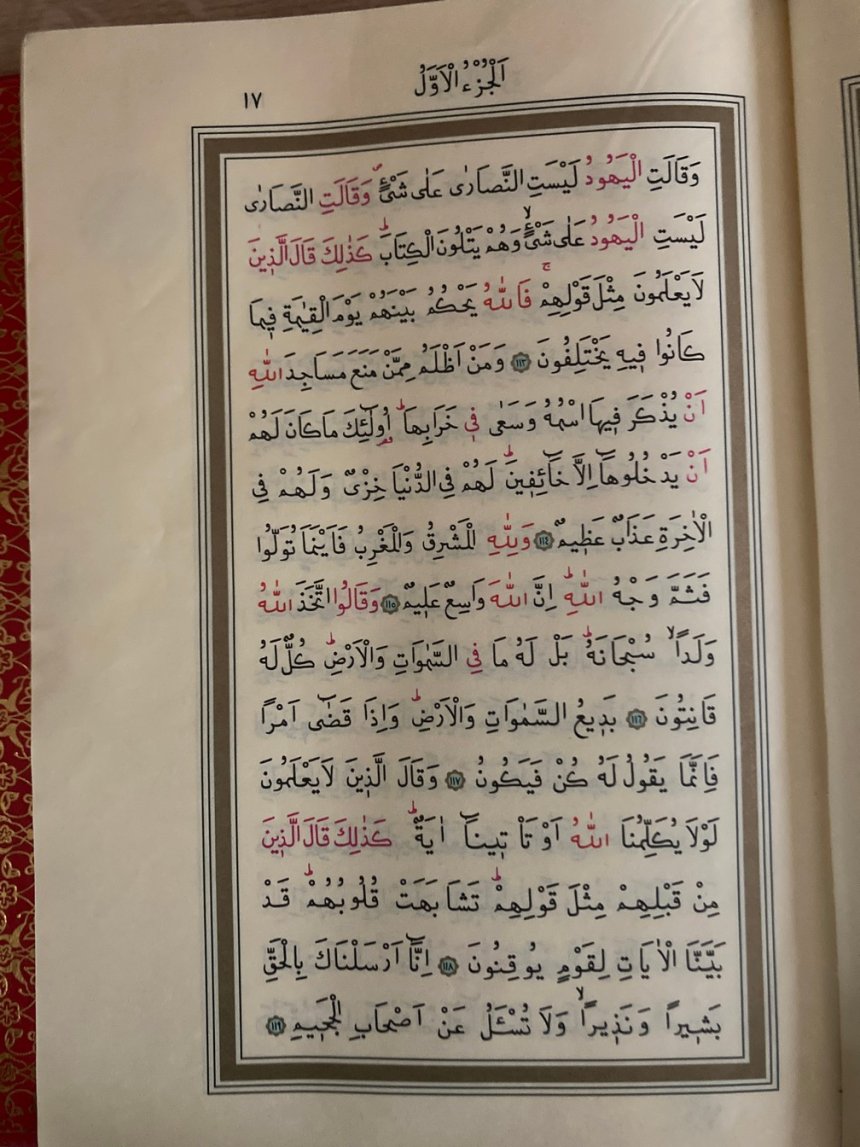 اَلْجُزْءُ الْاَوَّلُ
١٧
وَقَالَتِ الْيَهُودُ لَيْسَتِ النَّصَارٰى عَلٰى شَىْءٍۖ وَقَالَتِ النَّصَارٰى
لَيْسَتِ الْيَهُودُ عَلٰى شَىْءٍۙ وَهُمْ يَتْلُونَ الْكِتَابَۜ كَذٰلِكَ قَالَ الَّذ۪ينَ
لَا يَعْلَمُونَ مِثْلَ قَوْلِهِمْۚ فَاللّٰهُ يَحْكُمُ بَيْنَهُمْ يَوْمَ الْقِيٰمَةِ ف۪يمَا
كَانُوا ف۪يهِ يَخْتَلِفُونَ ﴿١١٣﴾ وَمَنْ اَظْلَمُ مِمَّنْ مَنَعَ مَسَاجِدَ اللّٰهِ
اَنْ يُذْكَرَ ف۪يهَا اسْمُهُ وَسَعٰى ف۪ي خَرَابِهَاۜ اُو۬لٰٓئِكَ مَا كَانَ لَهُمْ
اَنْ يَدْخُلُوهَٓا اِلَّا خَٓائِف۪ينَۜ لَهُمْ فِي الدُّنْيَا خِزْىٌ وَلَهُمْ فِي
الْاٰخِرَةِ عَذَابٌ عَظ۪يمٌ ﴿١١٤﴾ وَلِلّٰهِ الْمَشْرِقُ وَالْمَغْرِبُ فَاَيْنَمَا تُوَلُّوا
فَثَمَّ وَجْهُ اللّٰهِۜ اِنَّ اللّٰهَ وَاسِعٌ عَل۪يمٌ ﴿١١٥﴾ وَقَالُوا اتَّخَذَ اللّٰهُ
وَلَداًۙ سُبْحَانَهُۜ بَلْ لَهُ مَا فِي السَّمٰوَاتِ وَالْاَرْضِۜ كُلٌّ لَهُ
قَانِتُونَ ﴿١١٦﴾ بَد۪يعُ السَّمٰوَاتِ وَالْاَرْضِۜ وَاِذَا قَضٰٓى اَمْراً
فَاِنَّمَا يَقُولُ لَهُ كُنْ فَيَكُونُ ﴿١١٧﴾ وَقَالَ الَّذ۪ينَ لَا يَعْلَمُونَ
لَوْلَا يُكَلِّمُنَا اللّٰهُ اَوْ تَأْت۪ينَٓا اٰيَةٌۜ كَذٰلِكَ قَالَ الَّذ۪ينَ
مِنْ قَبْلِهِمْ مِثْلَ قَوْلِهِمْۜ تَشَابَهَتْ قُلُوبُهُمْۜ قَدْ
بَيَّنَّا الْاٰيَاتِ لِقَوْمٍ يُوقِنُونَ ﴿١١٨﴾ اِنَّٓا اَرْسَلْنَاكَ بِالْحَقِّ
بَش۪يراً وَنَذ۪يراًۙ وَلَا تُسْـَٔلُ عَنْ اَصْحَابِ الْجَح۪يمِ ﴿١١٩﴾